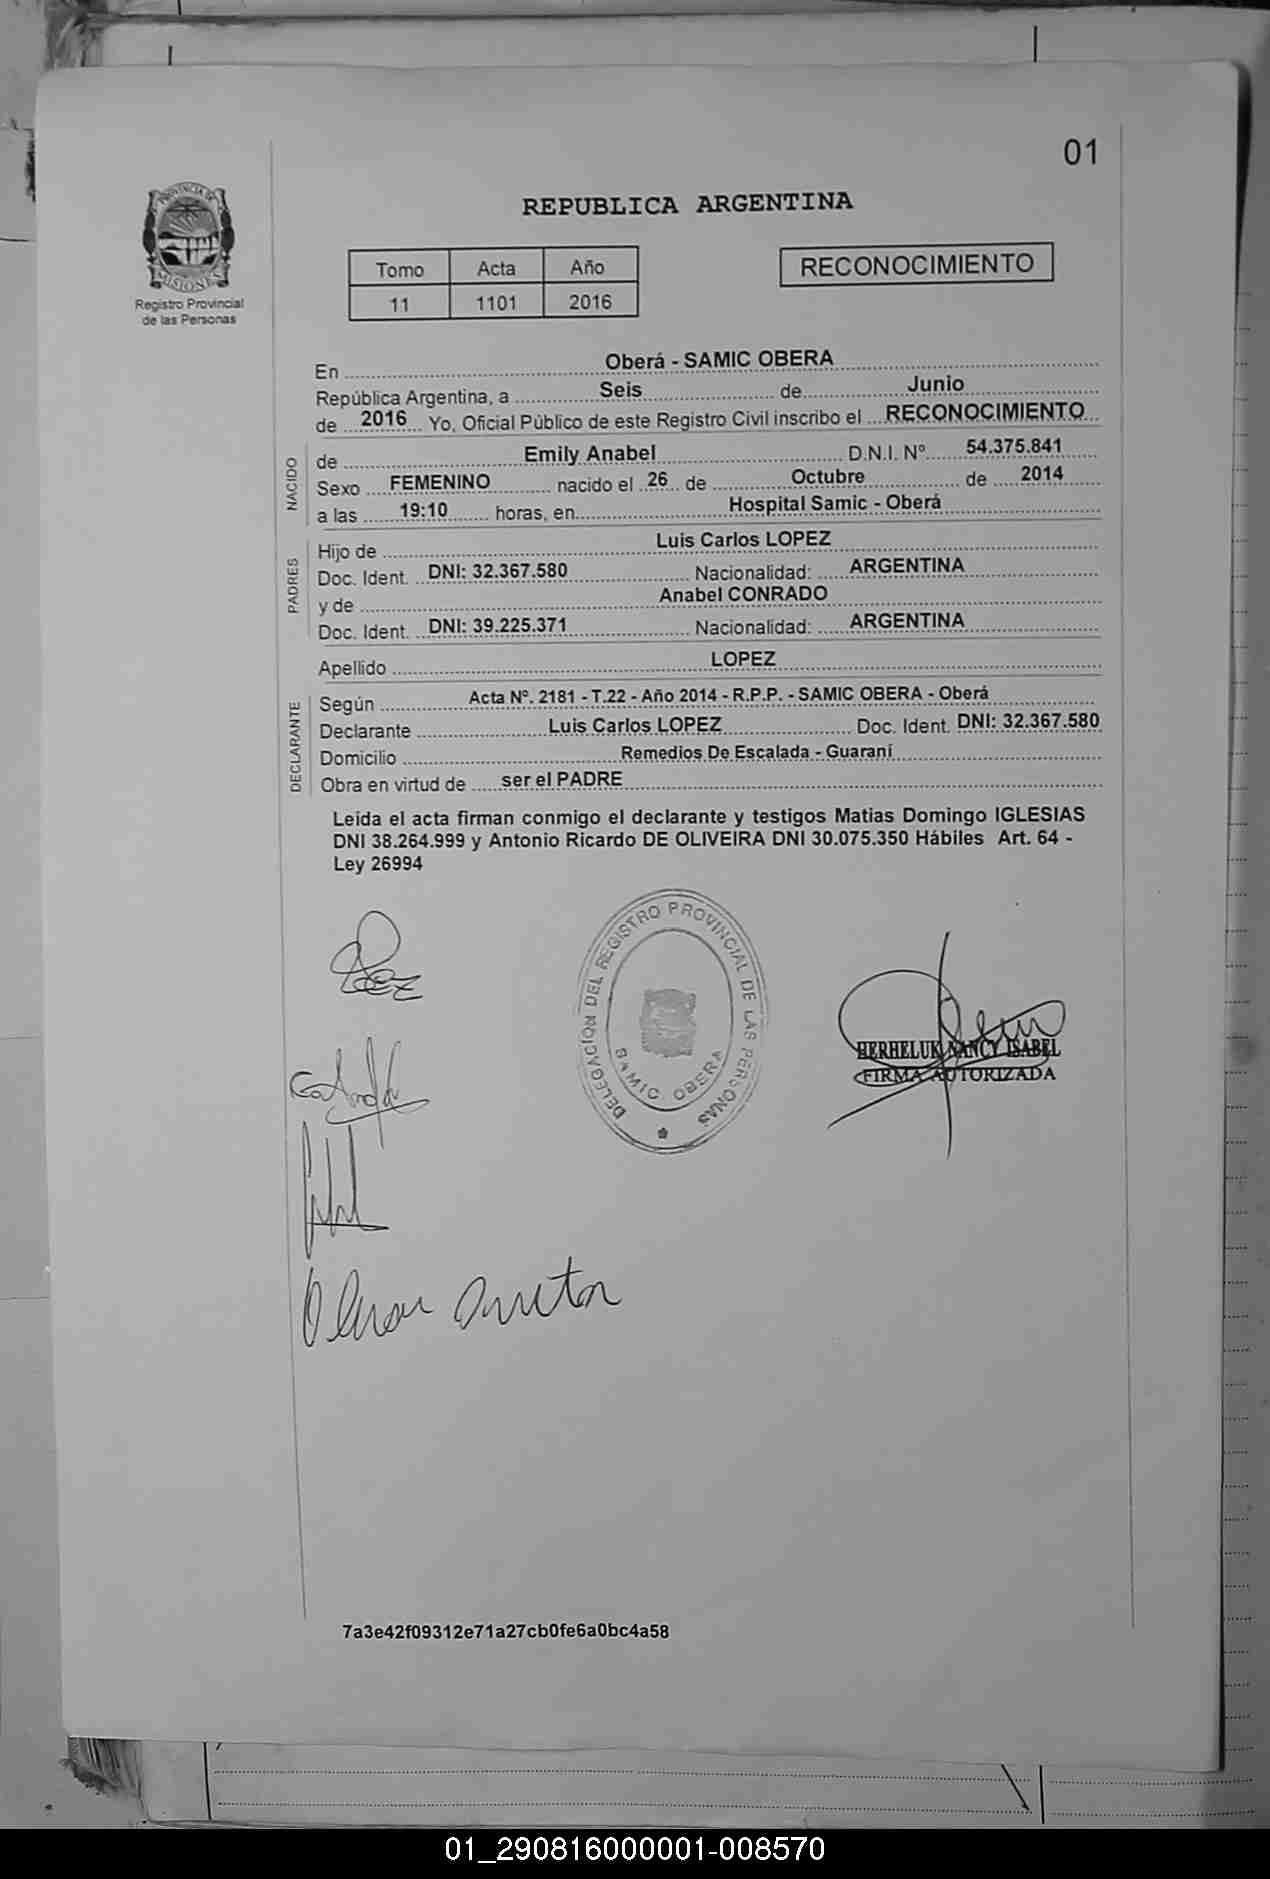 01
PROVINCIA DE
MISIONES
Registro Provincial
de las Personas
REPUBLICA ARGENTINA
Tomo Acta Año
11 1101 2016
RECONOCIMIENTO
En Oberá - SAMIC OBERA
República Argentina, a Seis de Junio
de 2016 Yo, Oficial Público de este Registro Civil inscribo el RECONOCIMIENTO
NACIDO
de Emily Anabel D.N.I. Nº 54.375.841
Sexo FEMENINO nacido el 26 de Octubre de 2014
a las 19:10 horas, en Hospital Samic - Oberá
PADRES
Hijo de Luis Carlos LOPEZ
Doc. Ident. DNI: 32.367.580 Nacionalidad: ARGENTINA
y de Anabel CONRADO
Doc. Ident. DNI: 39.225.371 Nacionalidad: ARGENTINA
Apellido LOPEZ
DECLARANTE
Según Acta Nº. 2181 - T.22 - Año 2014 - R.P.P. - SAMIC OBERA - Oberá
Declarante Luis Carlos LOPEZ Doc. Ident. DNI: 32.367.580
Domicilio Remedios De Escalada - Guaraní
Obra en virtud de ser el PADRE
Leida el acta firman conmigo el declarante y testigos Matias Domingo IGLESIAS
DNI 38.264.999 y Antonio Ricardo DE OLIVEIRA DNI 30.075.350 Hábiles Art. 64 -
Ley 26994
DELEGACION DEL REGISTRO PROVINCIAL DE LAS PERSONAS
SAMIC OBERA
HERHELUK NANCY ISABEL
FIRMA AUTORIZADA
7a3e42f09312e71a27cb0fe6a0bc4a58
01_290816000001-008570